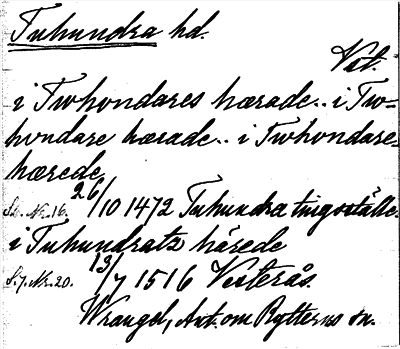 Tuhundra hd.
Vst.
i Twhondares hærade.. i Tw=
hondare hærade.. i Twhondare=
hærede
S. Nr. 16. 26/10 1472 Tuhundra tingsställe.
i Tuhundratz härede
S. 7. Nr. 20. 13/7 1516 Vesterås.
Wrangel, Ant. om Rytterns sn.